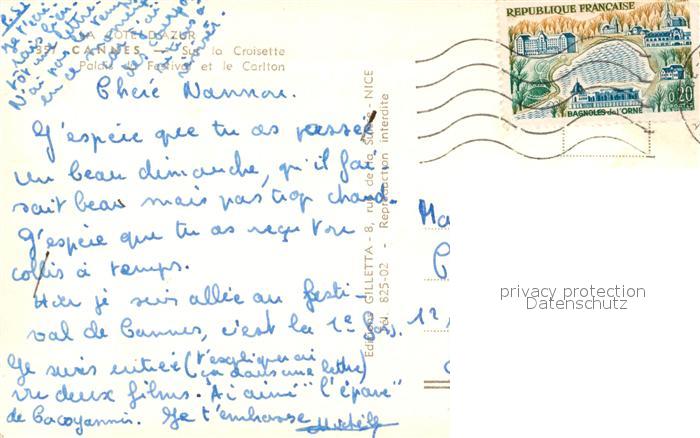 LA COTE D'AZUR
357 CANNES — Sur la Croisette
Palais du Festival et le Carlton
Cheré Nannou.
J'espére que tu as passé
un beau dimanche, qu'il fai-
sait beau mais pas trop chaud.
J'espére que tu as reçu ton
collis à temps.
Hier je suis allée au festi-
val de Cannes, c'est la 1e fois.
Je suis entrée (t'expliquerai
ça dans une lettre)
vu deux films. Ai aimé "l'épave"
de Cacoyannis. Je t'embrasse
Michèle
Editions GILLETTA - 8, rue de la Suisse - NICE
Tél. 825-02 - Reproduction interdite
REPUBLIQUE FRANÇAISE
0,20
POSTES
BAGNOLES de l'ORNE
Ma
12
privacy protection
Datenschutz